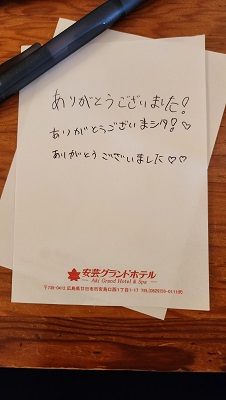 ありがとうございました!
ありがとうございまシタ!♡
ありがとうございました♡♡
安芸グランドホテル
Aki Grand Hotel & Spa
広島県廿日市市宮島口西1丁目1-17